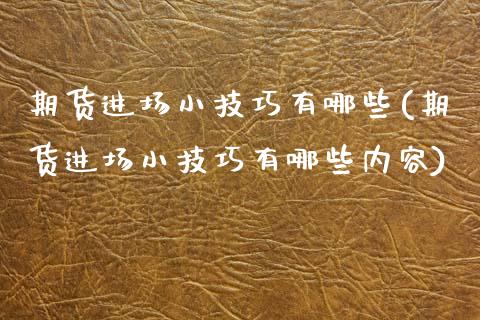 期货进场小技巧有哪些(期
货进场小技巧有哪些内容)